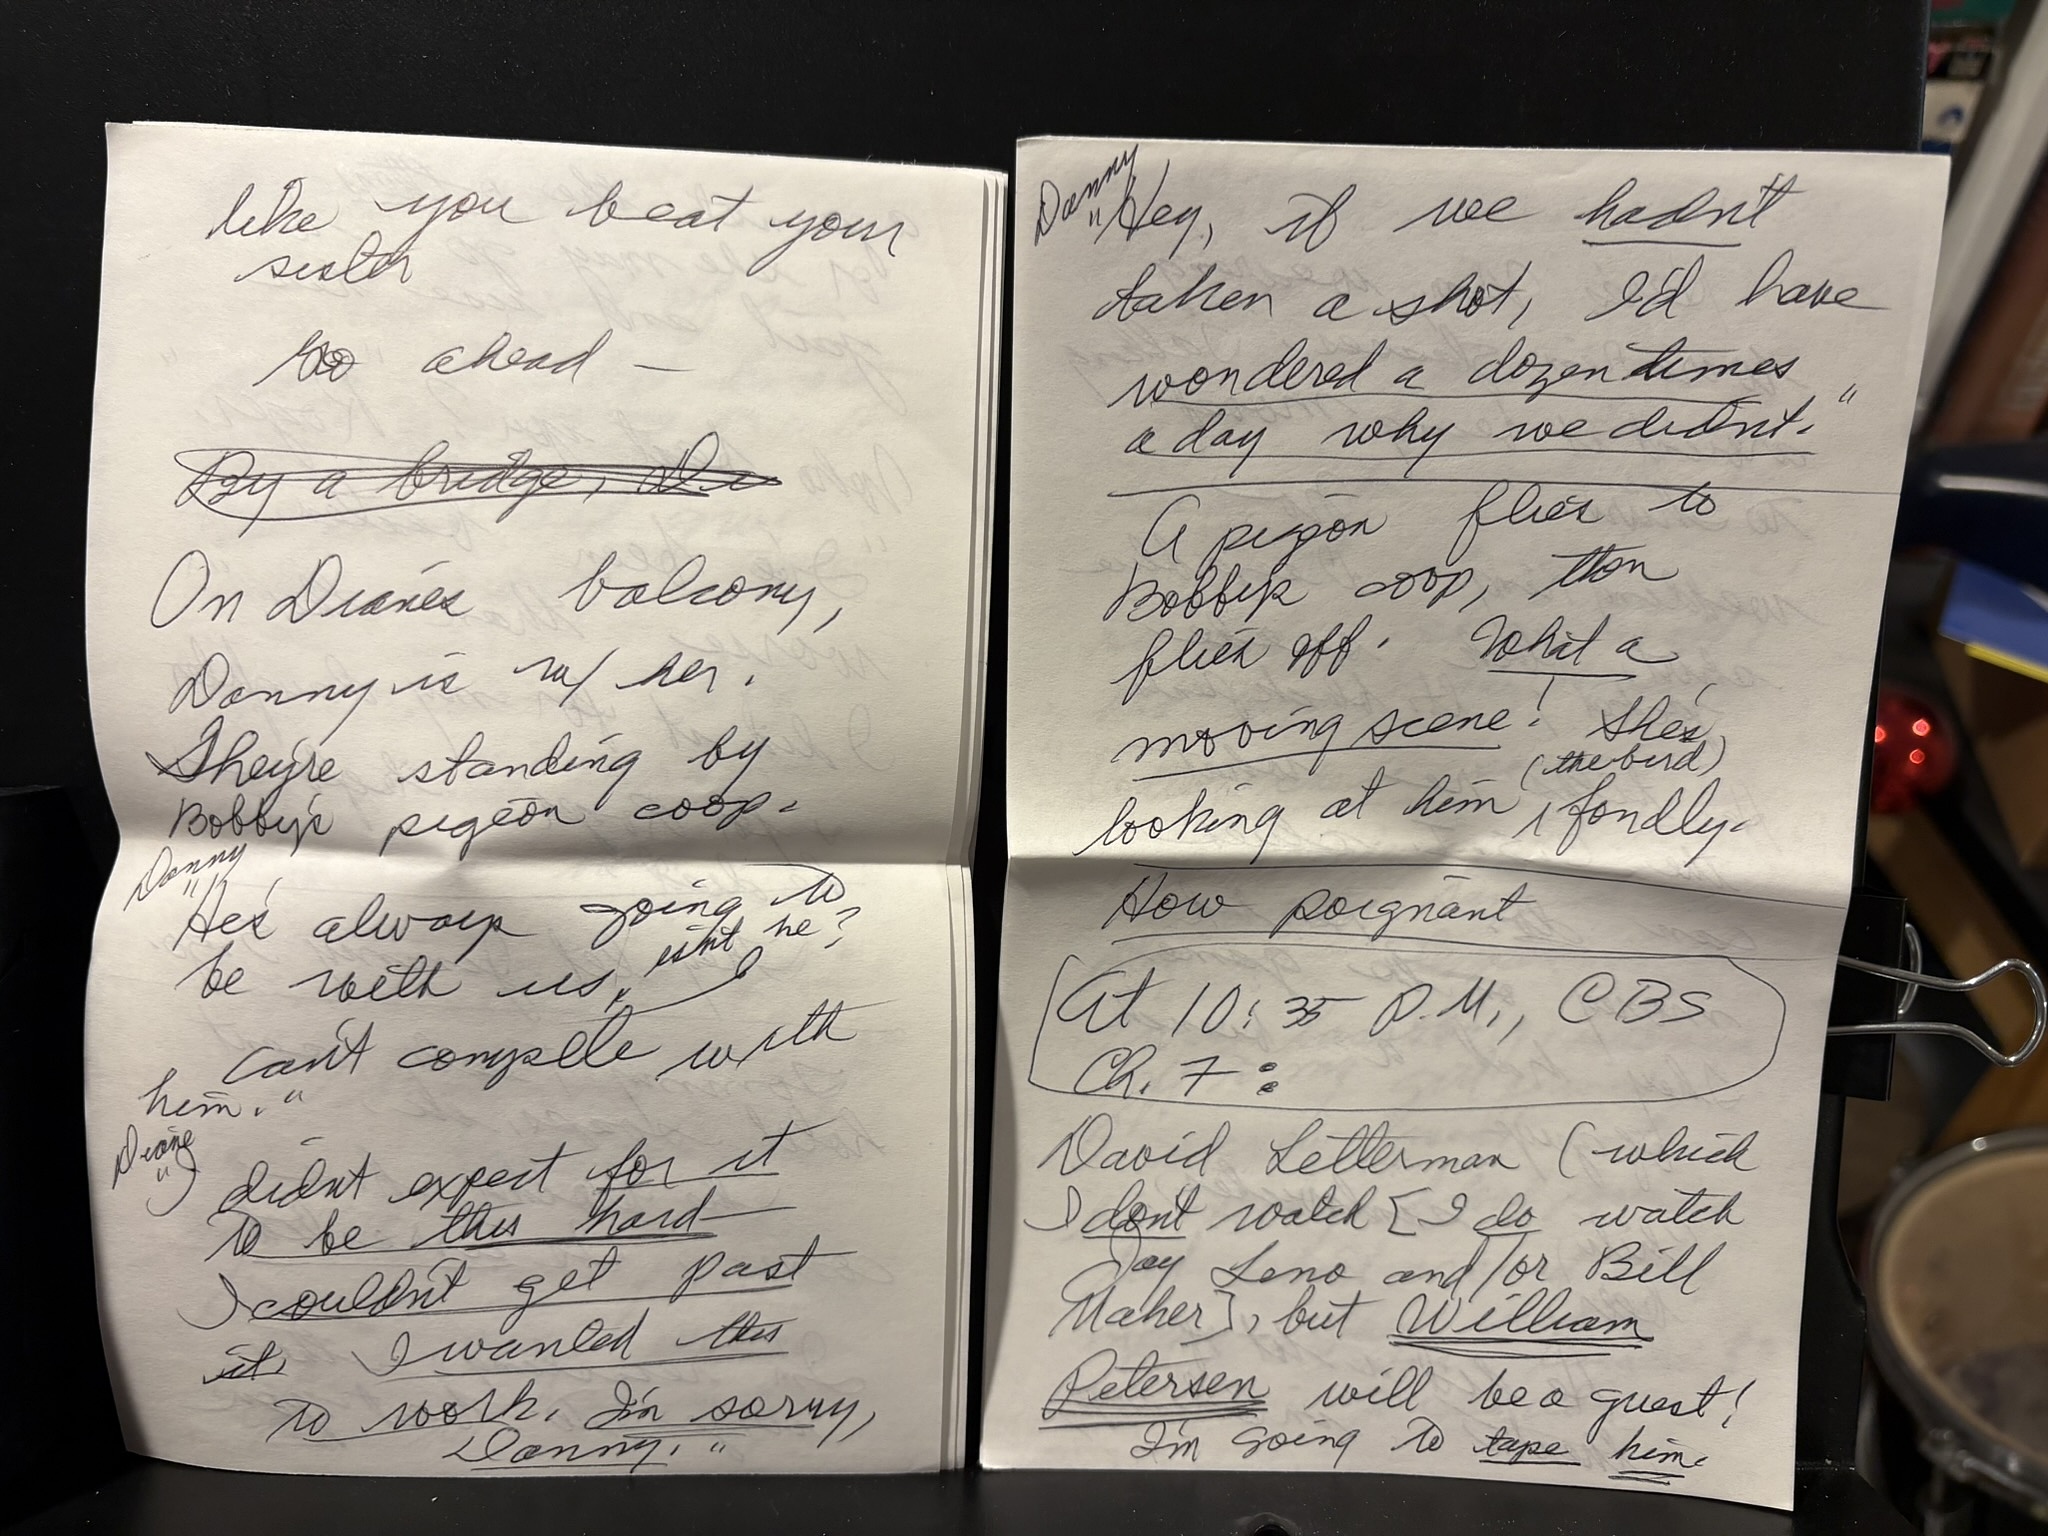 like you beat your
sister
Go ahead —
By a bridge, Di
On Diane's balcony,
Danny is w/ her.
They're standing by
Bobby's pigeon coop.
Danny
"He's always going to
be with us, isn't he? I
can't compete with
him."
Diane
"I didn't expect for it
to be this hard—
I couldn't get past
it. I wanted this
to work. I'm sorry,
Danny."
Danny
"Hey, if we hadn't
taken a shot, I'd have
wondered a dozen times
a day why we didn't."
A pigeon flies to
Bobby's coop, then
flies off. What a
moving scene! She's
(the bird)
looking at him, fondly.
How poignant
At 10:35 P.M., CBS
Ch. 7:
David Letterman (which
I don't watch [I do watch
Jay Leno and/or Bill
Maher], but William
Petersen will be a guest!
I'm going to tape him.